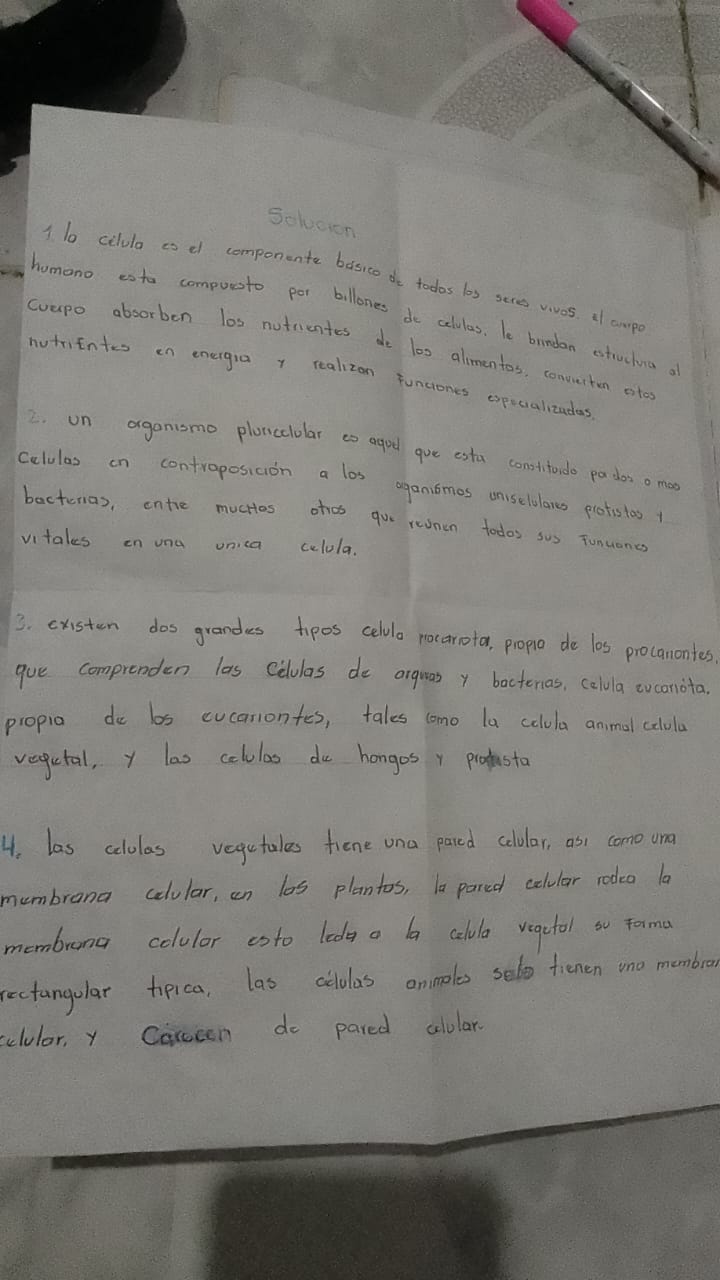 Solucion
1. la célula es el componente básico de todos los seres vivos el cuerpo
humano esta compuesto por billones de celulas. le brindan estructura al
cuerpo absorben los nutrientes de los alimentos, convierten estos
nutrientes en energia y realizan funciones especializadas.
2. un organismo pluricelular es aquel que esta constituido por dos o mas
Celulas en contraposición a los organismos uniselulares protistas y
bacterias, entre muchos otros que reunen todas sus funciones
vitales en una unica celula.
3. existen dos grandes tipos celula procariota, propia de los procariontes,
que comprenden las Células de arqueas y bacterias, celula eucariota.
propia de los eucariontes, tales como la celula animal celula
vegetal, y las celulas de hongos y protista
4. las celulas vegetales tiene una pared celular, asi como una
membrana celular, en las plantas, la pared celular rodea la
membrana celular esto leda a la celula vegetal su forma
rectangular tipica, las células animales solo tienen una membran
celular, y Carecen de pared celular.